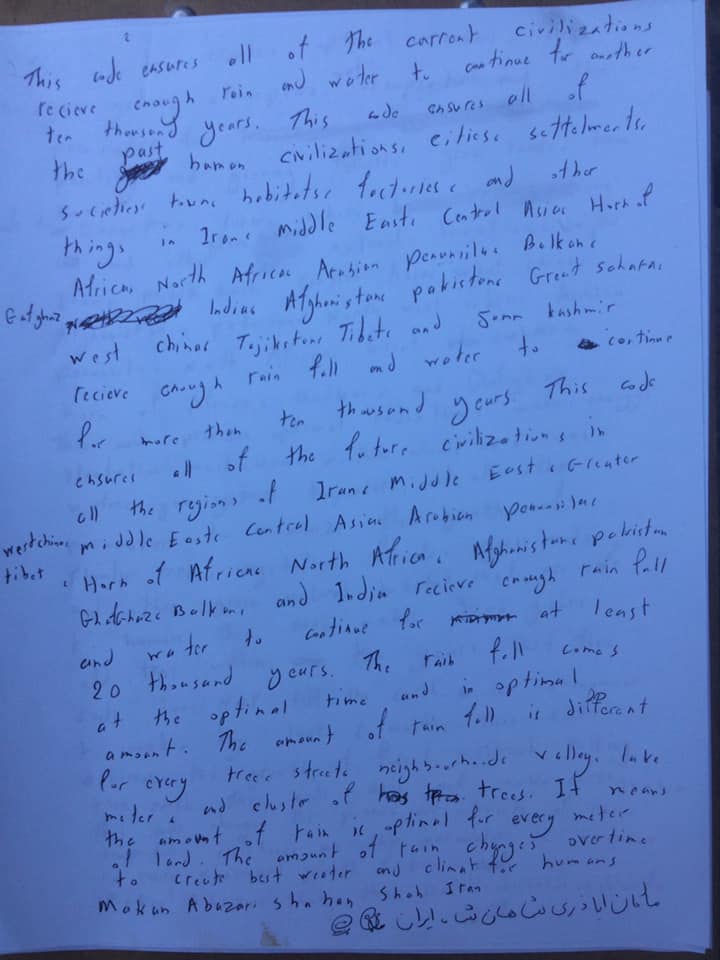 2
This code ensures all of the current civilizations
recieve enough rain and water to continue for another
ten thousand years. This code ensures all of
the past human civilizations, cities, settelments,
societies, towns, habitats, factories, and other
things in Iran, Middle East, Central Asia, Horn of
Africa, North Africa, Arabian Penunsila, Balkan,
India, Afghanistan, pakistan, Great Sahara,
west china, Tajikstan, Tibet, and kashmir
recieve enough rain fall and water to continue
for more than ten thousand years. This code
ensures all of the future civilizations in
all the regions of Iran, Middle East, Greater
westchina, Middle East, Central Asia, Arabian penunsila,
tibet, Horn of Africa, North Africa, Afghanistan, pakistan
Balkan, and India recieve enough rain fall
and water to continue for at least
20 thousand years. The rain fall comes
at the optimal time and in optimal
amount. The amount of rain fall is different
for every tree, street, neighbourhood, valley, lake
meter, and cluster of trees. It means
the amount of rain is optimal for every meter
of land. The amount of rain changes overtime
to create best weater and climat for humans
Makan Abazari Shahan Shah Iran
ماکان اباذری شاهان شاه ایران